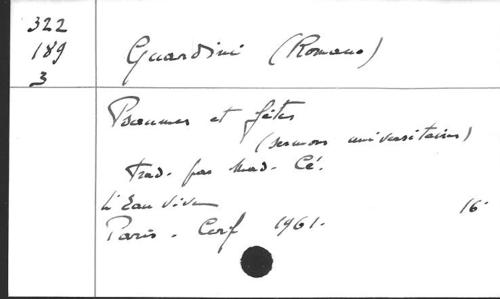 322
189
3
Guardini (Romano)
Psaumes et fêtes
(sermons universitaires)
Trad. par Mad. Cé.
L'Eau Vive
16°
Paris. Cerf 1961.